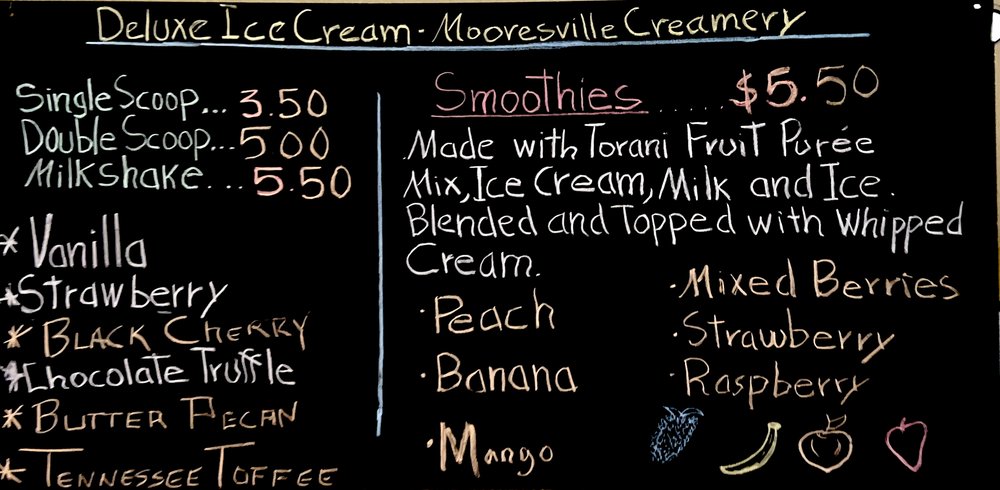 Deluxe Ice Cream - Mooresville Creamery
Single Scoop... 3.50
Double Scoop... 5 00
Milkshake.... 5.50
* Vanilla
* Strawberry
* Black Cherry
* Chocolate Truffle
* Butter Pecan
* Tennessee Toffee
Smoothies ...... $5.50
Made with Torani Fruit Purée
Mix, Ice Cream, Milk and Ice.
Blended and Topped with Whipped
Cream.
· Peach
· Banana
· Mango
· Mixed Berries
· Strawberry
· Raspberry